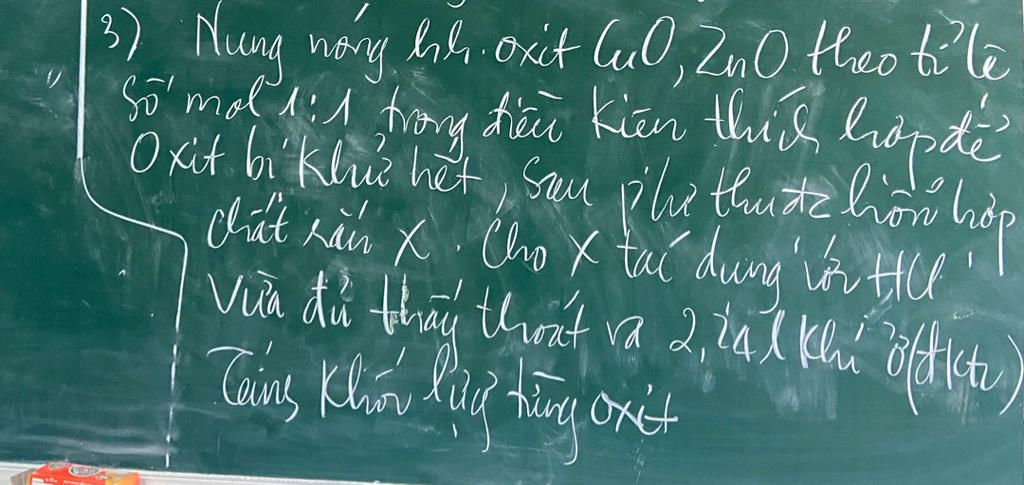 3) Nung nóng hh. oxit CuO, ZnO theo tỉ lệ
số mol 1:1 trong điều kiện thích hợp để
Oxit bị khử hết, sau pứ thu đc hỗn hợp
chất rắn X. Cho X tác dụng với HCl
Vừa đủ thấy thoát ra 2,24 l khí ở (đktc)
Tính khối lượng từng oxit